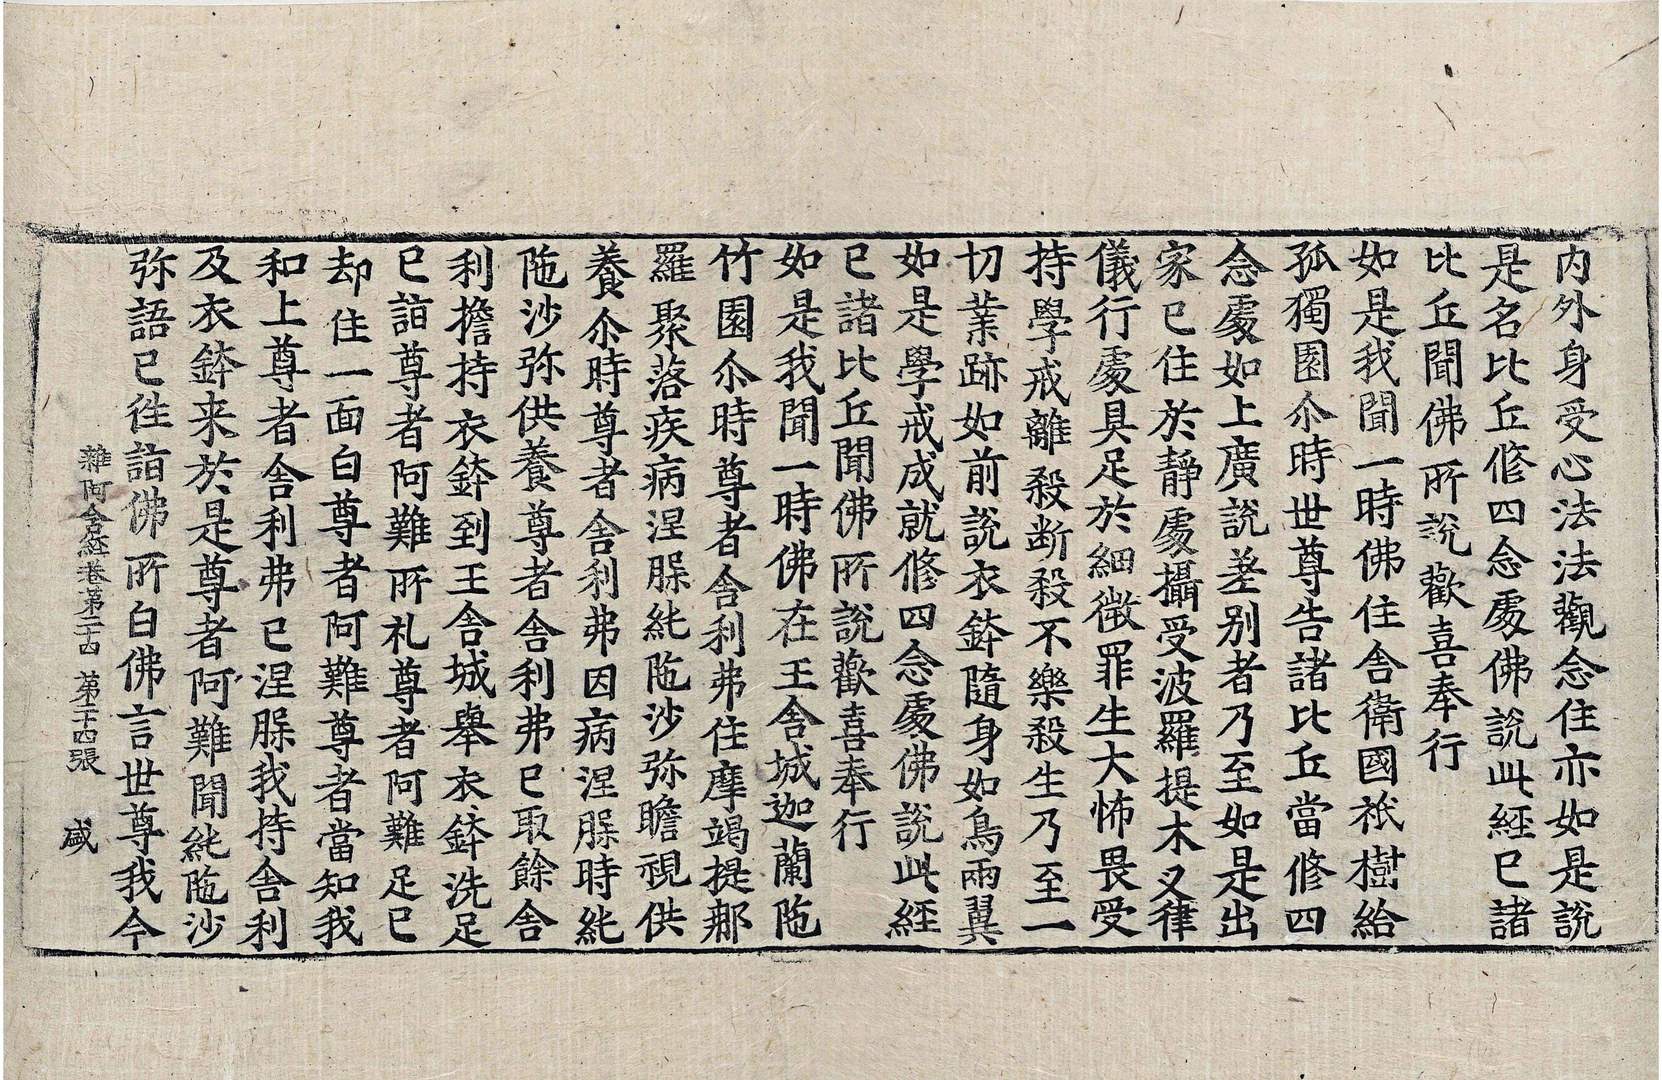 內外身受心法法觀念住亦如是說
是名比丘修四念處佛說此經已諸
比丘聞佛所說歡喜奉行
如是我聞一時佛住舍衛國祇樹給
孤獨園尒時世尊告諸比丘當修四
念處如上廣說差别者乃至如是出
家已住於静處攝受波羅提木叉律
儀行處具足於細微罪生大怖畏受
持學戒離殺断殺不樂殺生乃至一
切業跡如前說衣鉢隨身如鳥兩翼
如是學戒成就修四念處佛說此經
已諸比丘聞佛所說歡喜奉行
如是我聞一時佛在王舍城迦蘭陁
竹園尒時尊者舍利弗住摩竭提㝹
羅聚落疾病涅槃純陁沙弥瞻視供
養尒時尊者舍利弗因病涅槃時純
陁沙弥供養尊者舍利弗已取餘舍
利擔持衣鉢到王舍城舉衣鉢洗足
已詣尊者阿難所礼尊者阿難足已
却住一面白尊者阿難尊者當知我
和上尊者舍利弗已涅槃我持舍利
及衣鉢来於是尊者阿難聞純陁沙
弥語已往詣佛所白佛言世尊我今
雜阿含經卷第二十四 第二十四張 盛